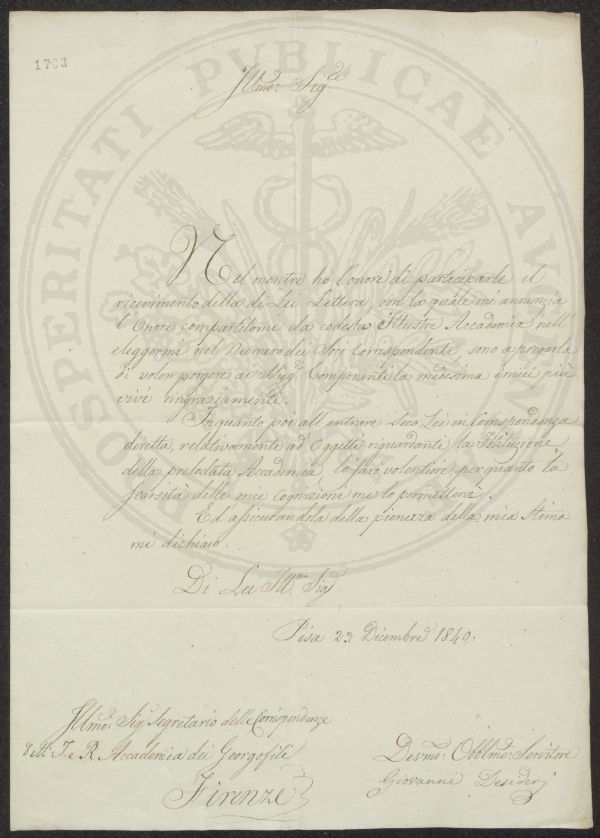 1703
PROSPERITATI PVBLICAE AVGENDAE
Illmo: Sigre
Nel mentre ho l'onore di parteciparle il
ricevimento della di Lei Lettera, con la quale mi annunzia
l'Onore compartitomi da codesta Illustre Accademia nell'
eleggermi nel Numero dei Socj Corrispondenti, sono a pregarla
di voler porgere ai Componenti la medesima i miei più
vivi ringraziamenti.
Inquanto poi all'entrare seco Lei in Corrispondenza
diretta, relativamente ad Oggetti riguardanti la Istituzione
della prelodata Accademia, lo farò volentieri per quanto la
scarsità delle mie Cognizioni me lo permetterà.
Ed assicurandola della pienezza della mia Stima
mi dichiaro.
Di Lei Illmo Sigre
Pisa 23 Dicembre 1840.
Illmo: Sigr Segretario delle Corrispondenze
dell'I. e R. Accademia dei Georgofili
Firenze
Devmo: Obblmo: Servitore
Giovanni Desiderj